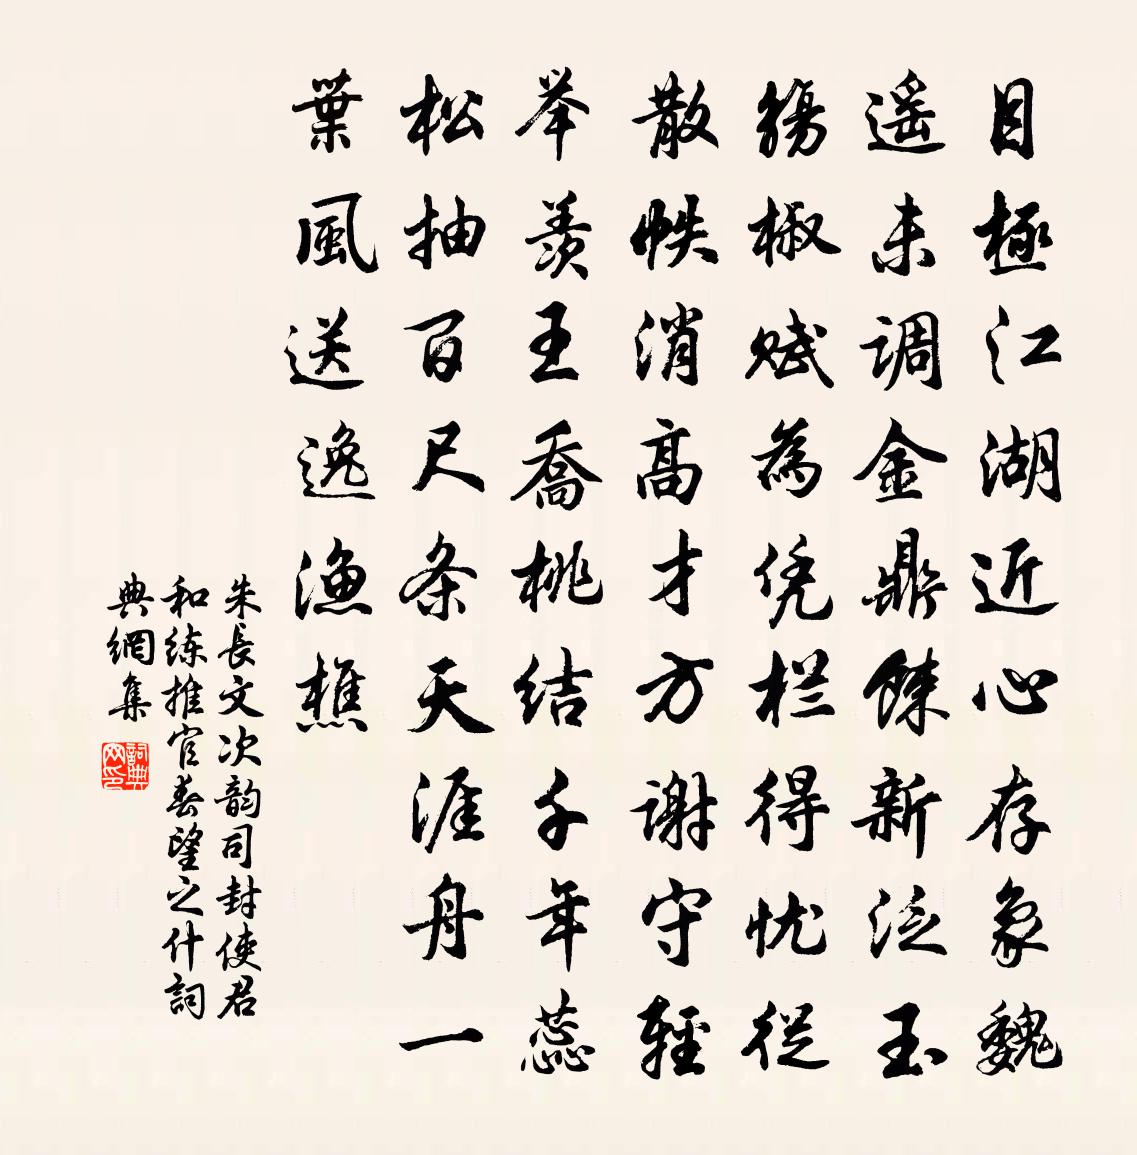 目極江湖近心存象魏
遥未调金鼎餗新泛玉
觴椒赋為凭栏得忧從
散帙消高才方谢守輕
举羡王喬桃结千年蕊
松抽百尺条天涯舟一
葉風送逸漁樵
朱長文次韵司封使君
和练推官春望之什詞
典網集
詞典网印